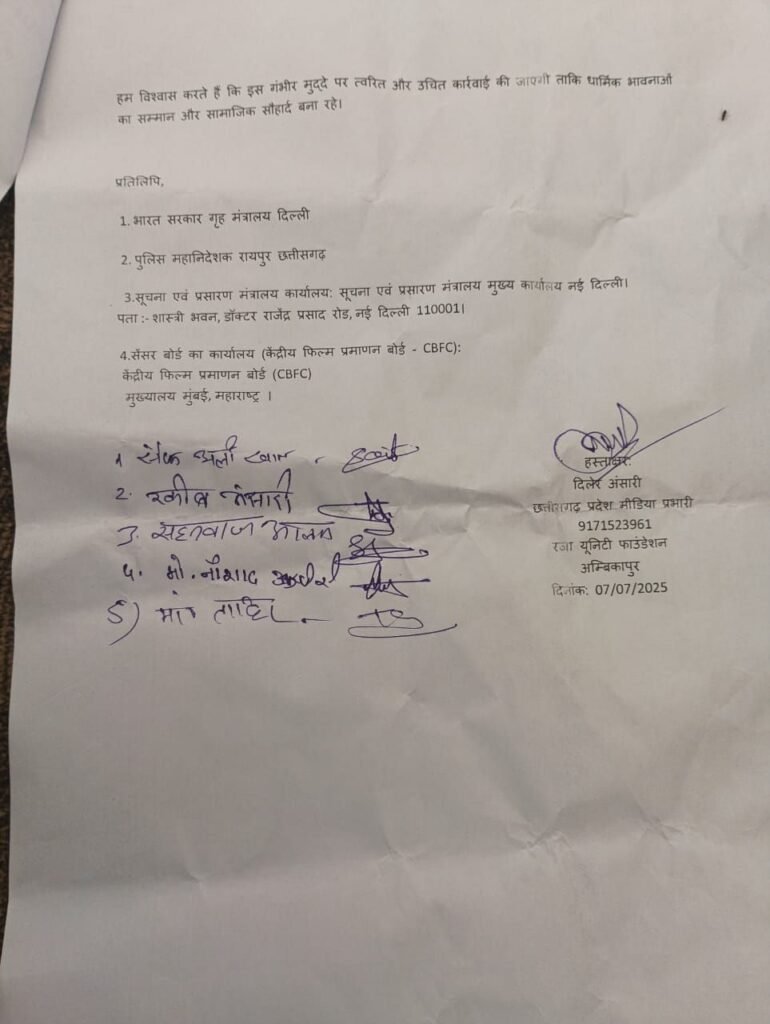 हम विश्वास करते हैं कि इस गंभीर मुद्दे पर त्वरित और उचित कार्रवाई की जाएगी ताकि धार्मिक भावनाओं
का सम्मान और सामाजिक सौहार्द बना रहे।
प्रतिलिपि,
1. भारत सरकार गृह मंत्रालय दिल्ली
2. पुलिस महानिदेशक रायपुर छत्तीसगढ़
3.सूचना एवं प्रसारण मंत्रालय कार्यालय: सूचना एवं प्रसारण मंत्रालय मुख्य कार्यालय नई दिल्ली।
पता :- शास्त्री भवन, डॉक्टर राजेंद्र प्रसाद रोड, नई दिल्ली 110001।
4.सेंसर बोर्ड का कार्यालय (केंद्रीय फिल्म प्रमाणन बोर्ड - CBFC):
केंद्रीय फिल्म प्रमाणन बोर्ड (CBFC)
मुख्यालय मुंबई, महाराष्ट्र ।
1 अली खान
2.
3. आलम
4. मो. नौशाद
5)
हस्ताक्षर:
दिलेर अंसारी
छत्तीसगढ़ प्रदेश मीडिया प्रभारी
9171523961
रजा यूनिटी फाउंडेशन
अम्बिकापुर
दिनांक: 07/07/2025